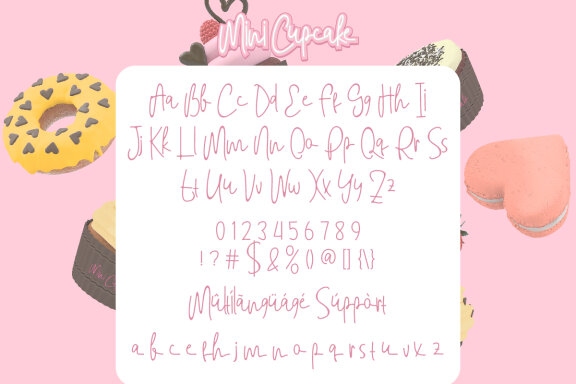 Mini Cupcake
Aa Bb Cc Dd Ee Ff Gg Hh Ii
Jj Kk Ll Mm Nn Oo Pp Qq Rr Ss
Tt Uu Vv Ww Xx Yy Zz
0123456789
!?#$&%()@[]{}
Múltilängüágé Súppòrt
a b c e f h j m n o p q r s t u v k z